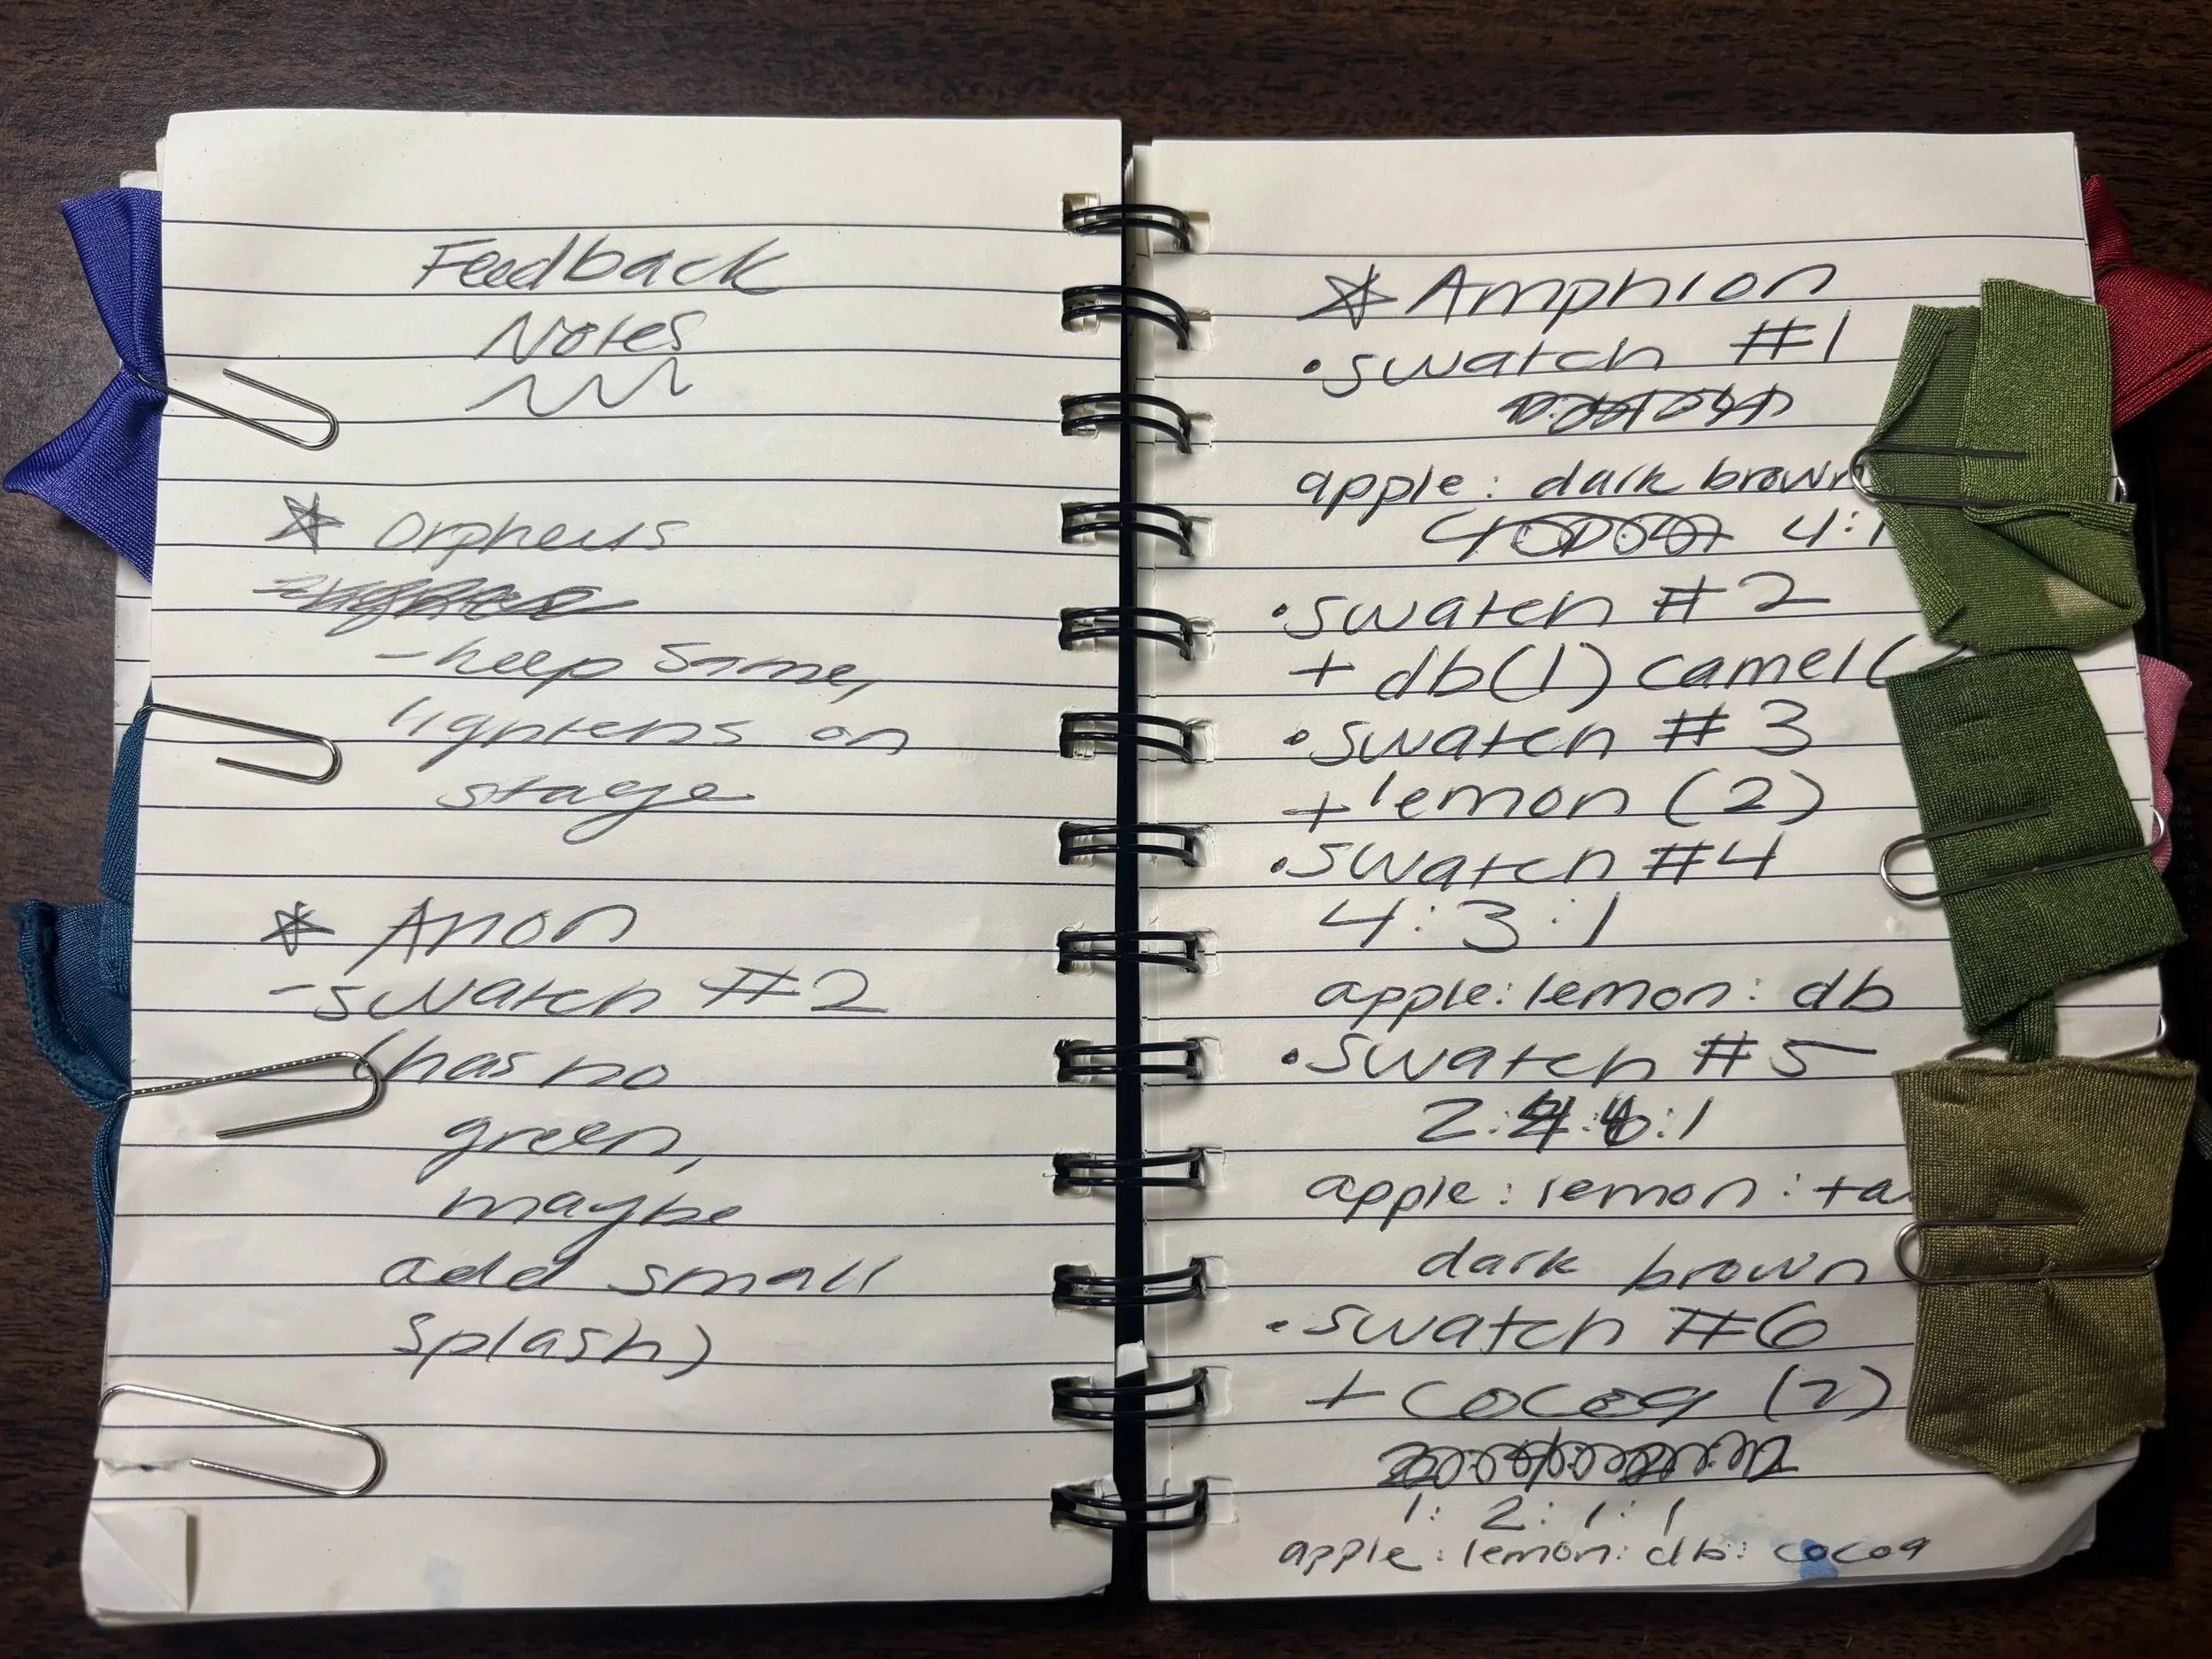 Feedback
Notes
* Orpheus
- keep same,
lightens on
stage
* Anon
- swatch #2
(has no
green,
maybe
add small
splash)
* Amphion
• swatch #1
apple: dark brown
4:1
• swatch #2
+ db(1) camel(
• swatch #3
+ lemon (2)
• swatch #4
4:3:1
apple: lemon: db
• swatch #5
2: :1
apple: lemon: ta
dark brown
• swatch #6
+ cocoa (2)
1: 2: 1: 1
apple: lemon: db: cocoa